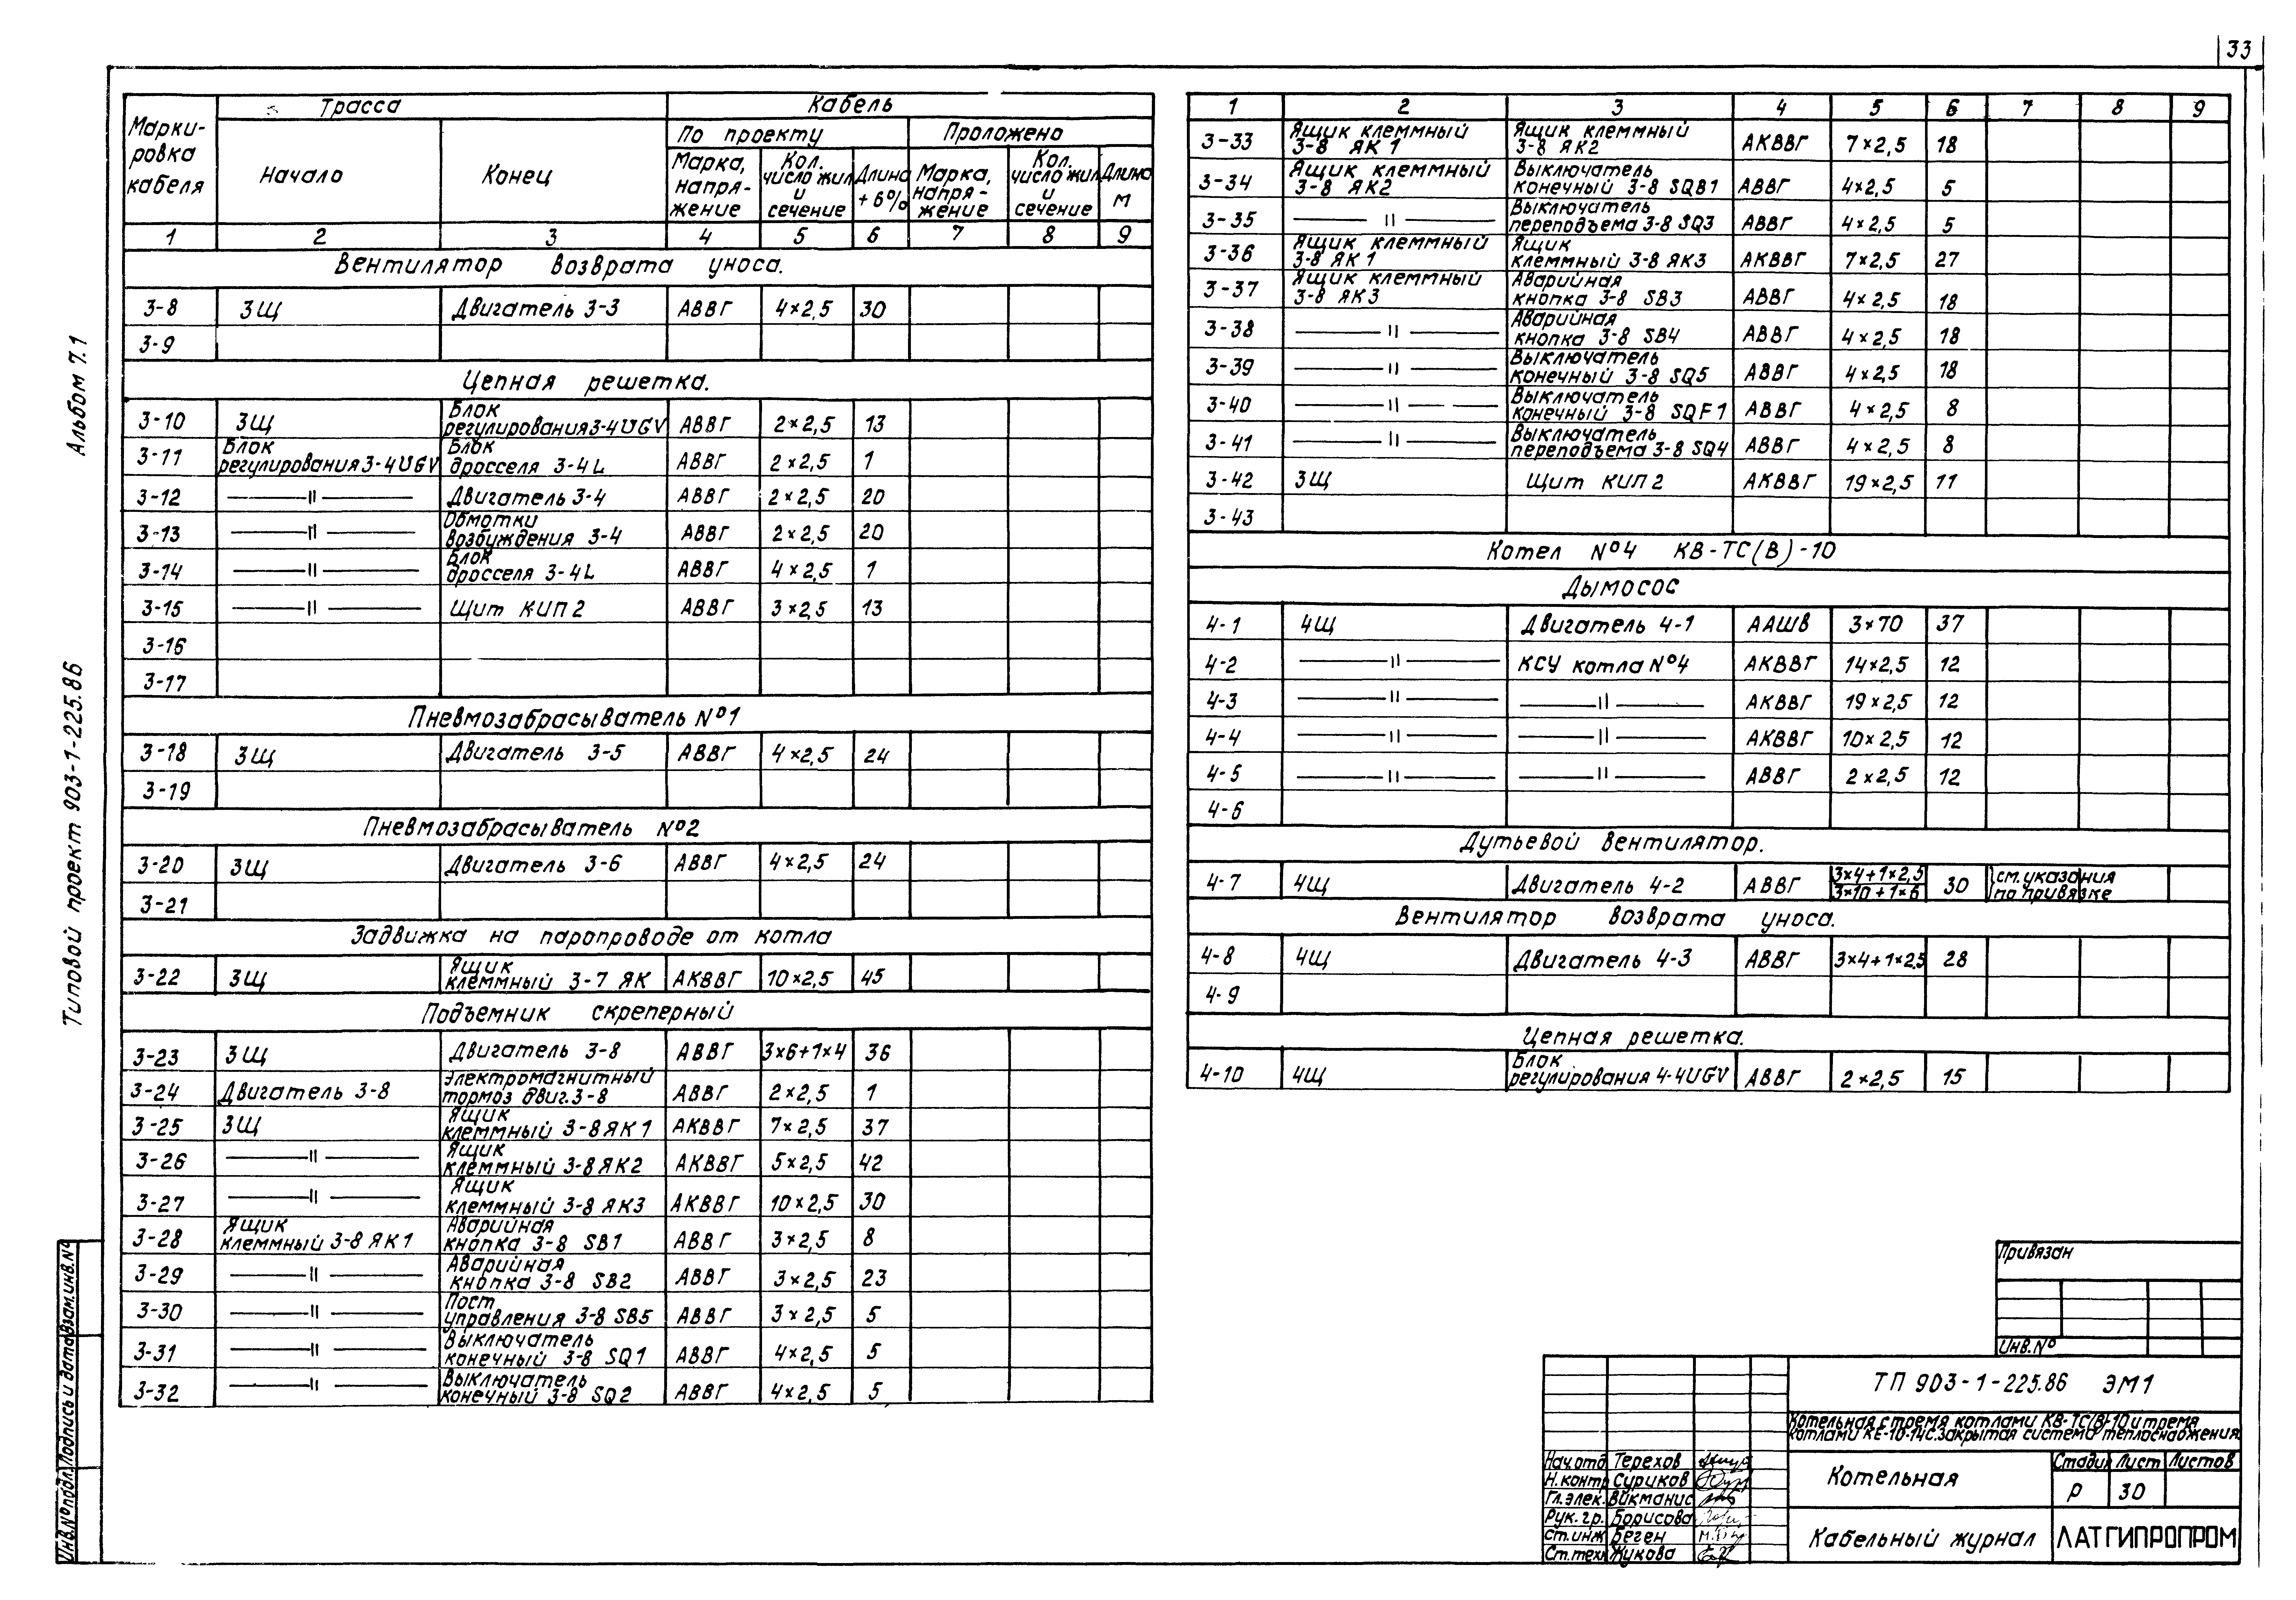 33
Альбом 7.1
Типовой проект 903-1-225.86
Инв.№ подл. Подпись и дата Взам.инв.№
Марки-ровка кабеля | Трасса | Кабель
По проекту | Проложено
Начало | Конец | Марка, напря-жение | Кол. число жил и сечение | Длина +6% | Марка, напря-жение | Кол. число жил и сечение | Длина м
1 2 3 4 5 6 7 8 9
Вентилятор возврата уноса.
3-8 3Щ Двигатель 3-3 АВВГ 4×2,5 30
3-9
Цепная решетка.
3-10 3Щ Блок регулирования 3-4UGV АВВГ 2×2,5 13
3-11 Блок регулирования 3-4UGV Блок дросселя 3-4L АВВГ 2×2,5 1
3-12 —॥— Двигатель 3-4 АВВГ 2×2,5 20
3-13 —॥— Обмотки возбуждения 3-4 АВВГ 2×2,5 20
3-14 —॥— Блок дросселя 3-4L АВВГ 4×2,5 1
3-15 —॥— Щит КИП2 АВВГ 3×2,5 13
3-16
3-17
Пневмозабрасыватель №1
3-18 3Щ Двигатель 3-5 АВВГ 4×2,5 24
3-19
Пневмозабрасыватель №2
3-20 3Щ Двигатель 3-6 АВВГ 4×2,5 24
3-21
Задвижка на паропроводе от котла
3-22 3Щ Ящик клеммный 3-7 ЯК АКВВГ 10×2,5 45
Подъемник скреперный
3-23 3Щ Двигатель 3-8 АВВГ 3×6+1×4 36
3-24 Двигатель 3-8 Электромагнитный тормоз двиг.3-8 АВВГ 2×2,5 1
3-25 3Щ Ящик клеммный 3-8 ЯК1 АКВВГ 7×2,5 37
3-26 —॥— Ящик клеммный 3-8 ЯК2 АКВВГ 5×2,5 42
3-27 —॥— Ящик клеммный 3-8 ЯК3 АКВВГ 10×2,5 30
3-28 Ящик клеммный 3-8 ЯК1 Аварийная кнопка 3-8 SB1 АВВГ 3×2,5 8
3-29 —॥— Аварийная кнопка 3-8 SB2 АВВГ 3×2,5 23
3-30 —॥— Пост управления 3-8 SB5 АВВГ 3×2,5 5
3-31 —॥— Выключатель конечный 3-8 SQ1 АВВГ 4×2,5 5
3-32 —॥— Выключатель конечный 3-8 SQ2 АВВГ 4×2,5 5
1 2 3 4 5 6 7 8 9
3-33 Ящик клеммный 3-8 ЯК1 Ящик клеммный 3-8 ЯК2 АКВВГ 7×2,5 18
3-34 Ящик клеммный 3-8 ЯК2 Выключатель конечный 3-8 SQB1 АВВГ 4×2,5 5
3-35 —॥— Выключатель переподъема 3-8 SQ3 АВВГ 4×2,5 5
3-36 Ящик клеммный 3-8 ЯК1 Ящик клеммный 3-8 ЯК3 АКВВГ 7×2,5 27
3-37 Ящик клеммный 3-8 ЯК3 Аварийная кнопка 3-8 SB3 АВВГ 4×2,5 18
3-38 —॥— Аварийная кнопка 3-8 SB4 АВВГ 4×2,5 18
3-39 —॥— Выключатель конечный 3-8 SQ5 АВВГ 4×2,5 18
3-40 —॥— Выключатель конечный 3-8 SQF1 АВВГ 4×2,5 8
3-41 —॥— Выключатель переподъема 3-8 SQ4 АВВГ 4×2,5 8
3-42 3Щ Щит КИП2 АКВВГ 19×2,5 11
3-43
Котел №4 КВ-ТС(В)-10
Дымосос
4-1 4Щ Двигатель 4-1 ААШВ 3×70 37
4-2 —॥— КСУ котла №4 АКВВГ 14×2,5 12
4-3 —॥— —॥— АКВВГ 19×2,5 12
4-4 —॥— —॥— АКВВГ 10×2,5 12
4-5 —॥— —॥— АВВГ 2×2,5 12
4-6
Дутьевой вентилятор.
4-7 4Щ Двигатель 4-2 АВВГ 3×4+1×2,5 / 3×10+1×6 30 }см. указания по привязке
Вентилятор возврата уноса.
4-8 4Щ Двигатель 4-3 АВВГ 3×4+1×2,5 28
4-9
Цепная решетка.
4-10 4Щ Блок регулирования 4-4UGV АВВГ 2×2,5 15
Привязан
Инв.№
ТП 903-1-225.86 ЭМ1
Котельная с тремя котлами КВ-ТС(В)-10 и тремя
котлами КЕ-10-14С. Закрытая система теплоснабжения.
Нач.отд Терехов
Н.контр Суриков
Гл.элек. Викманис
Рук.гр. Борисова
Ст.инж Беген
Ст.техн Жукова
Котельная
Стадия Лист Листов
Р 30
Кабельный журнал
ЛАТГИПРОПРОМ